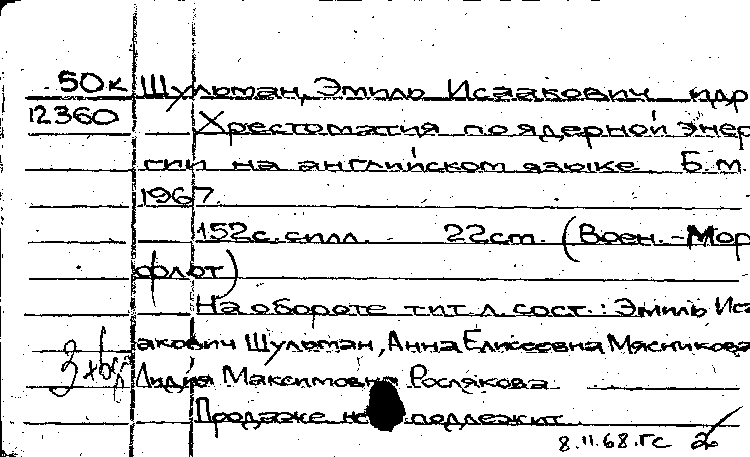 50к Шульман, Эмиль Исаакович идр
12360 Хрестоматия по ядерной энер
гии на английском языке. Б.м.
1967.
152с. силл. 22см. (Воен.-Мор
флот)
На обороте тит л. сост.: Эмиль Иса
акович Шульман, Анна Елисеевна Мясникова
Лидия Максимовна Рослякова
Продаже не подлежит.
8.11.68. ГС